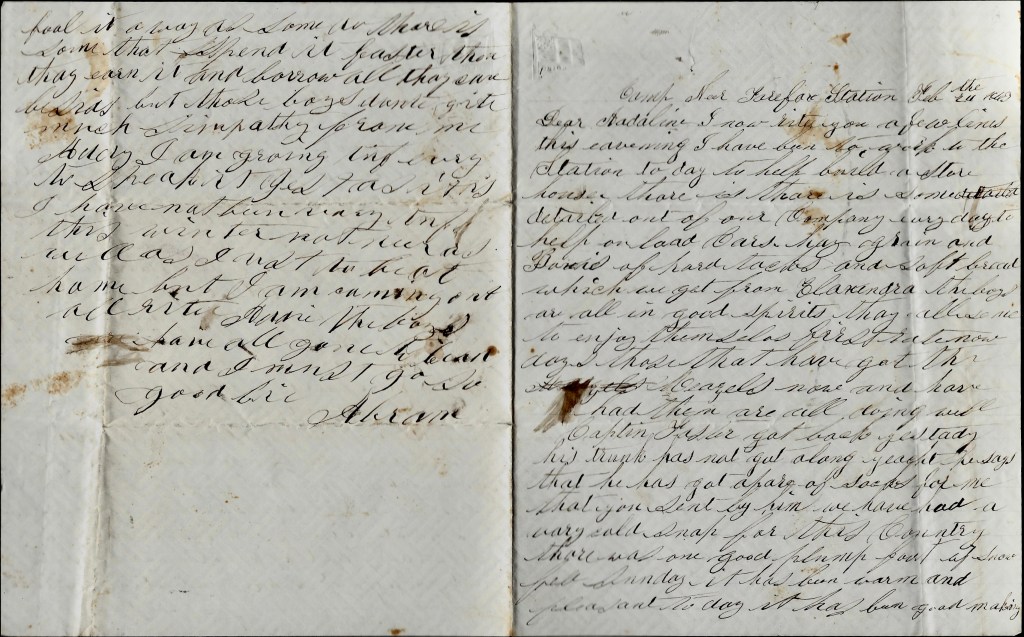 Camp Near Fairfax Station Feb the 24 1863
Dear Madaline I now rite you a few lines
this eavening I have ben to work to the
Station to day to help build a store
house there is thare is some
detailed out of our Company evry day to
help on load Cars hay & grain and
Boxes of hard tacks and soft bread
which we get from Elaxendra the boys
are all in good spirits thay all seme
to enjoy themselvs first rate now
days those that have got the
Meazels now and have
had them are all doing well
Captin got back yestady
his trunk has not got along yeaght he says
that he has got a pare of socks for me
that you sent by him we have had a
vary cold snap for this Country
thare was one good plump foot of snow
fell Sunday it has ben warm and
pleasant to day it has ben good making
fool it a way as some do thare is
some that spend it faster then
thay earn it and borrow all thay can
besids but those boys dont git
much simpathy from me
I am groing tuf evry
I have not ben very tuf
this winter not near as
well as I ust to be at
home but I am coming out
all rite the boys
have all gone to bead
and I must go so
good bie
Abram